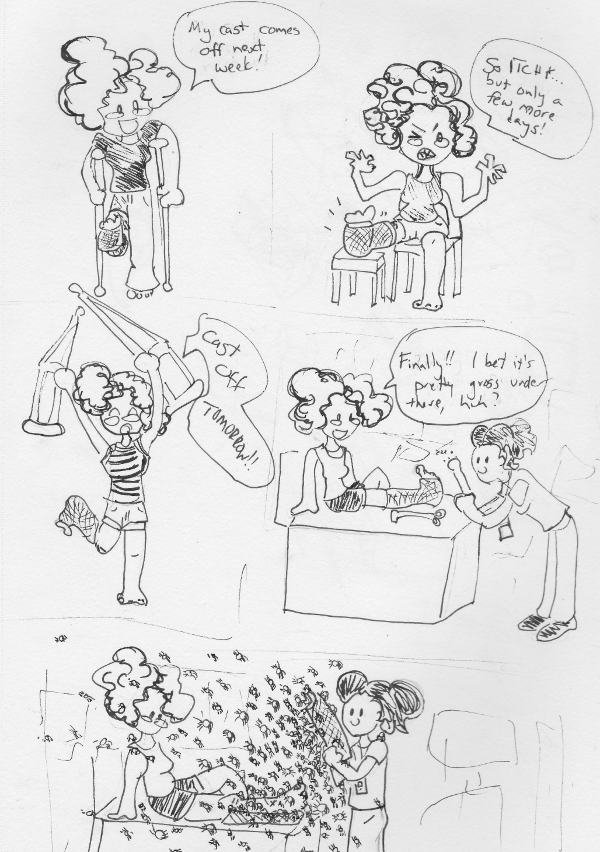 My cast comes
off next
week!
So ITCHY...
but only a
few more
days!
Cast
Off
TOMORROW!!
Finally!! I bet it's
pretty gross under
there, huh?